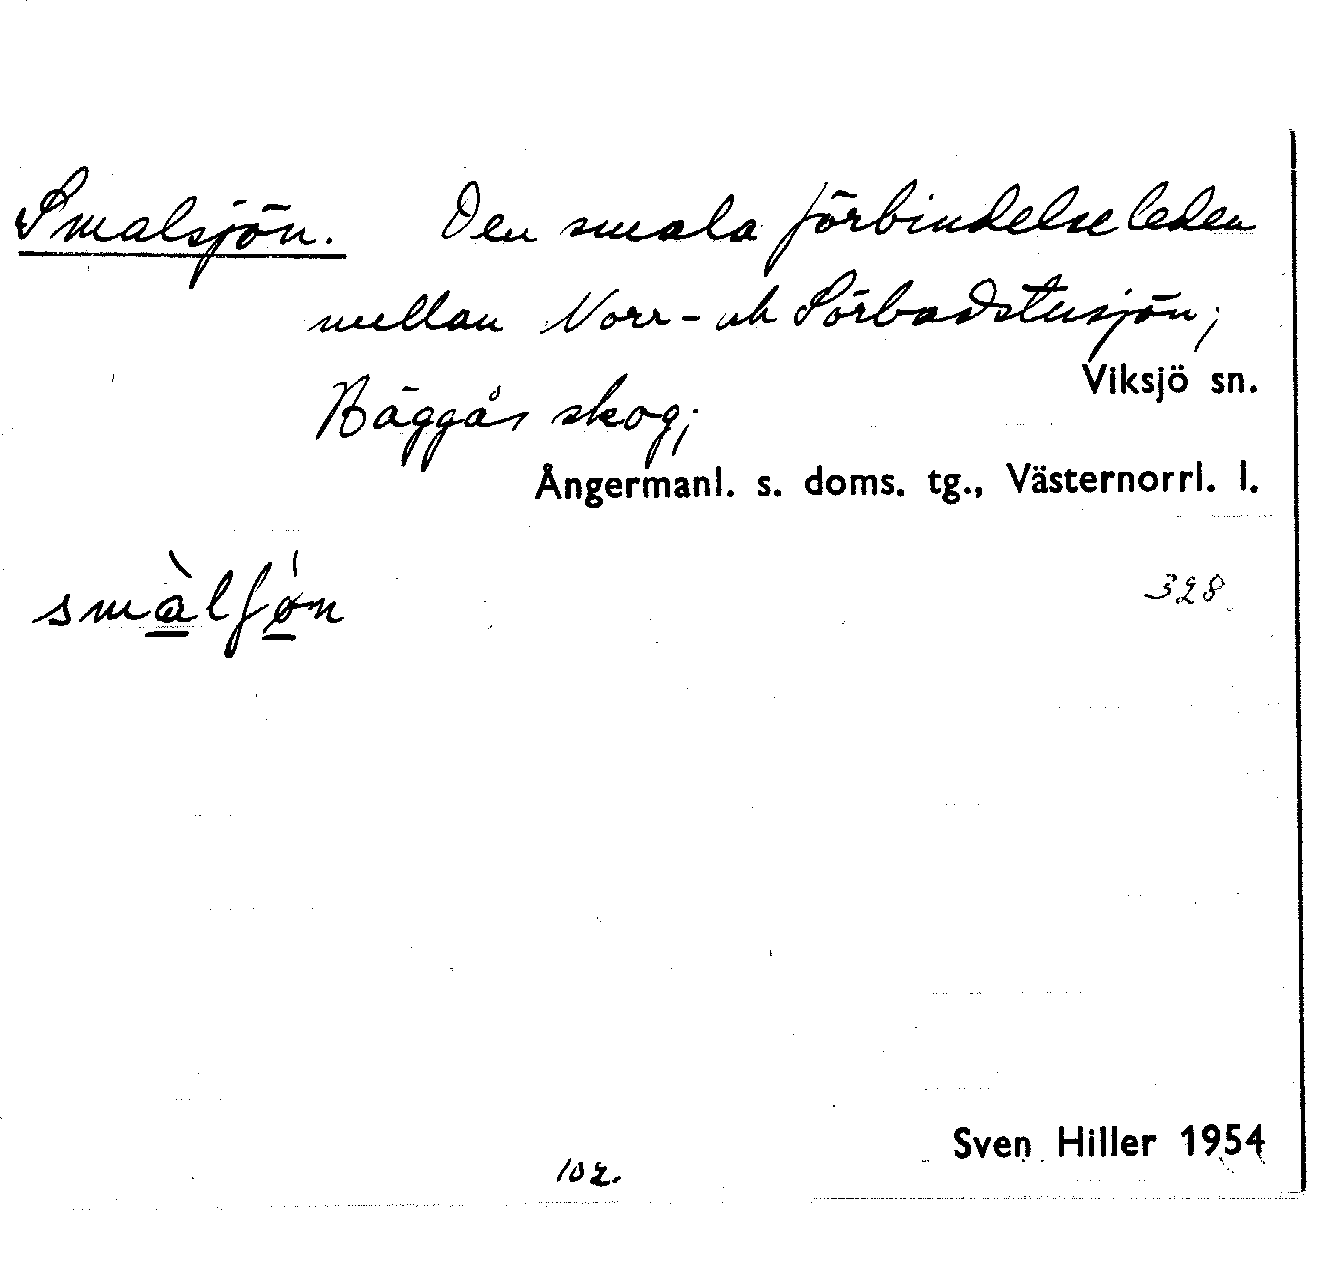 Smalsjön. Den smala förbindelseleden
mellan Norr- och Sörbadstusjön;
Viksjö sn.
Häggås skog;
Ångermanl. s. doms. tg., Västernorrl. l.
smàlʃø̀n
328
Sven Hiller 1954
102.